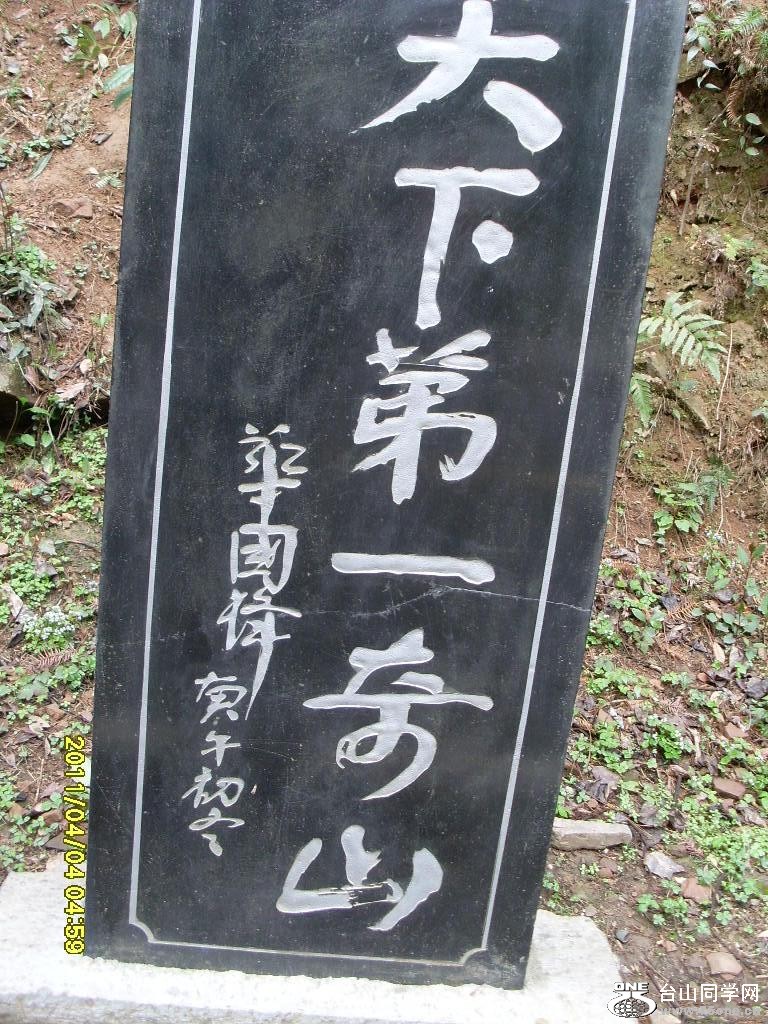 天下第一奇山
華國鋒
庚午初冬
2011/04/04 04:59
ONE
台山同学网